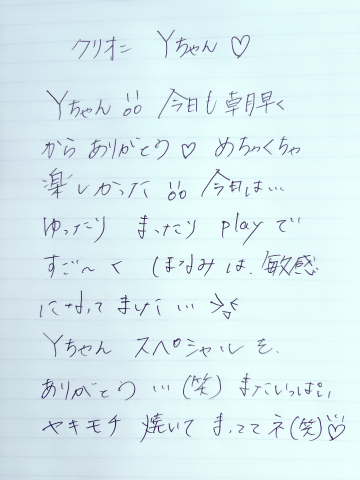 クリオニ Yちゃん♡
Yちゃん!!今日も朝早く
から ありがとう♡ めちゃくちゃ
楽しかった!!今日は…
ゆったり まったり playで
すご〜く ほなみは、敏感
になってました…
Yちゃん スペシャルを
ありがとう…(笑) まだいっぱい
ヤキモチ 焼いて まっててネ(笑)♡